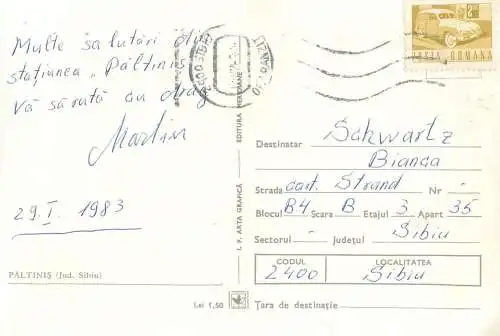 Multe salutări din
stațiunea „Păltiniș
Vă sărută cu drag
Martin
29.I. 1983
PĂLTINIȘ (Jud. Sibiu)
Lei 1,50
I. P. ARTA GRAFICĂ
EDITURA MERIDIANE
2400 SIBIU
POSTA ROMANA
Destinatar Schwartz
Bianca
Strada cart. Strand Nr -
Blocul B4 Scara B Etajul 3 Apart 35
Sectorul - Județul Sibiu
CODUL LOCALITATEA
2400 Sibiu
Țara de destinație